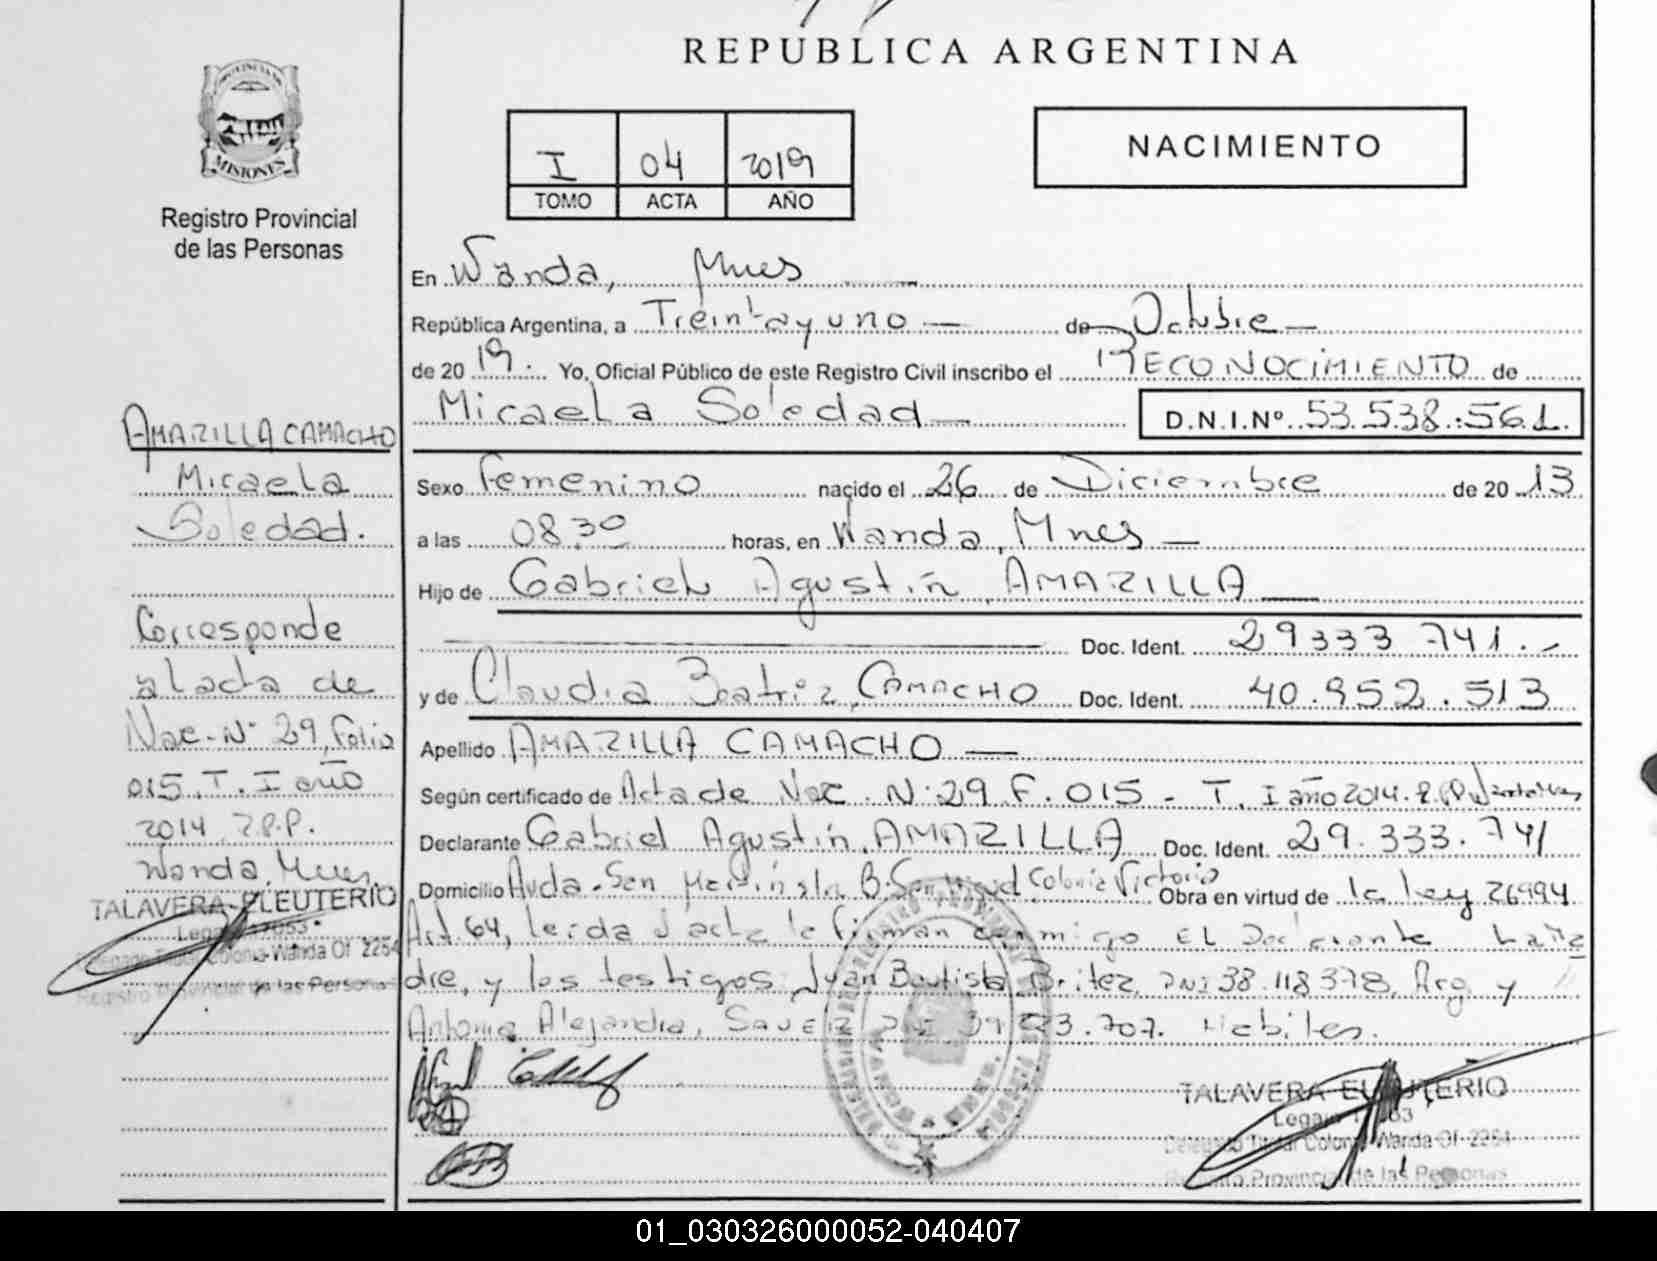 REPUBLICA ARGENTINA
PROVINCIA DE
MISIONES
Registro Provincial
de las Personas
I 04 2019
TOMO ACTA AÑO
NACIMIENTO
En Wanda, Mnes
República Argentina, a Treintayuno de Octubre
de 2019. Yo, Oficial Público de este Registro Civil inscribo el RECONOCIMIENTO de
Micaela Soledad D.N.I.Nº 53.538.561.
Sexo Femenino nacido el 26 de Diciembre de 2013
a las 08.30 horas, en Wanda, Mnes
Hijo de Gabriel Agustín, AMARILLA
Doc. Ident. 29333741.-
y de Claudia Beatriz, CAMACHO Doc. Ident. 40.952.513
Apellido AMARILLA CAMACHO
Según certificado de Acta de Nac. N: 29 F. 015 - T. I año 2014.
Declarante Gabriel Agustín, AMARILLA Doc. Ident. 29.333.741
Domicilio Avda. San B. San Miguel Colonia Victoria Obra en virtud de la ley 26994
Art. 64, leida el acta la firman conmigo EL Declarante
dre, y los testigos Juan Bautista Britez DNI 38.118.378, Arg. y
Alejandra, DNI .707. Habiles.
AMARILLA CAMACHO
Micaela
Soledad.
Corresponde
al acta de
Nac. N° 29, Folio
015. T. I año
2014
Wanda, Mnes,
TALAVERA ELEUTERIO
Delegado Titular Colonia Wanda Of 2254
Registro Provincial de las Personas
TALAVERA ELEUTERIO
Delegado Titular Colonia Wanda Of 2254
Registro Provincial de las Personas
01_030326000052-040407